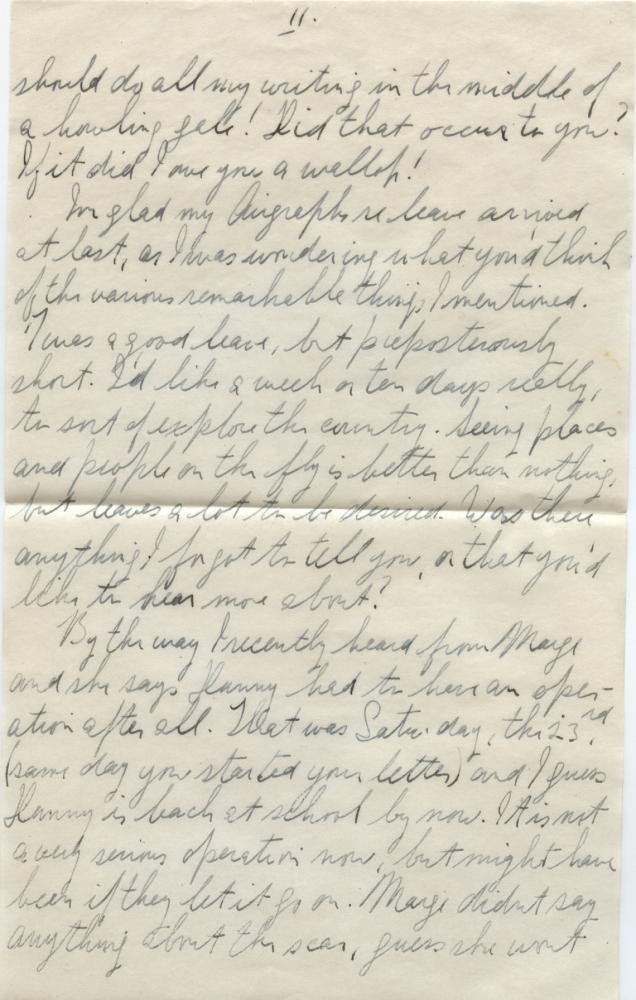 11.
should do all my writing in the middle of
a howling gale! Did that occur to you?
If it did I owe you a wallop!
I'm glad my Airgraphs re leave arrived
at last, as I was wondering what you'd think
of the various remarkable things I mentioned.
'Twas a good leave, but preposterously
short. I'd like a week or ten days really,
to sort of explore the country. Seeing places
and people on the fly is better than nothing,
but leaves a lot to be desired. Was there
anything I forgot to tell you, or that you'd
like to hear more about?
By the way I recently heard from Marge
and she says Hanny had to have an oper-
ation after all. That was Saturday, the 23rd,
(same day you started your letter) and I guess
Hanny is back at school by now. It is not
a very serious operation now, but might have
been if they let it go on. Marge didn't say
anything about the scar, guess she won't